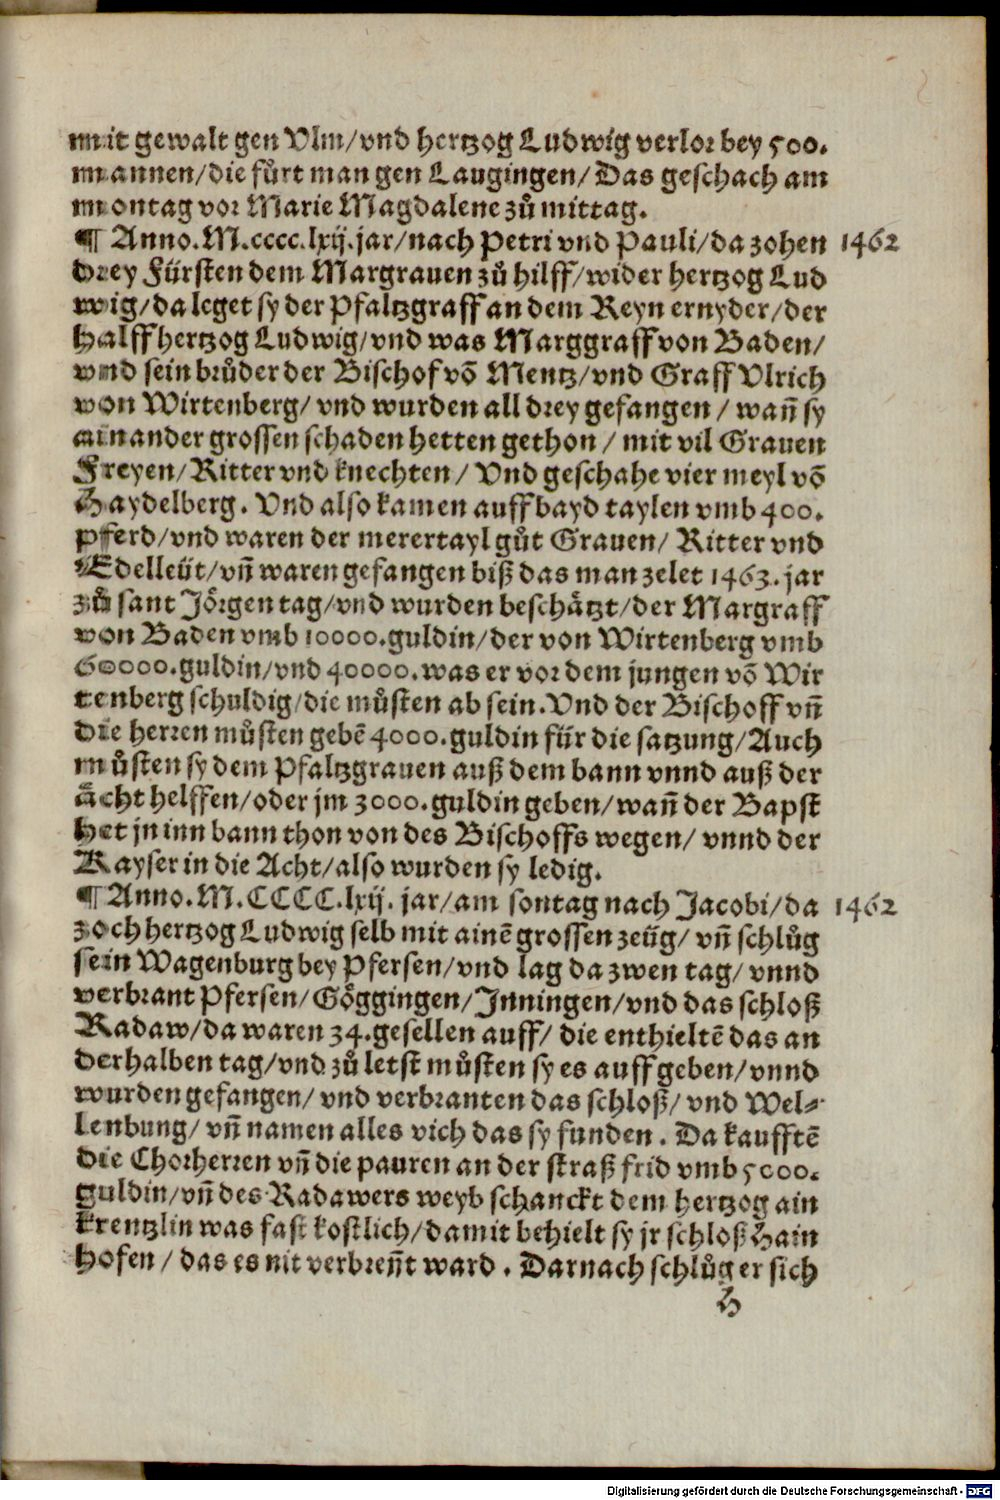 mit gewalt gen Vlm/vnd hertzog Ludwig verlor bey 500.
mannen/die fůrt man gen Laugingen/Das geschach am
montag vor Marie Magdalene zů mittag.
¶ Anno.M.cccc.lxij.jar/nach Petri vnd Pauli/da zohen 1462
drey Fürsten dem Margrauen zů hilff/wider hertzog Lud
wig/da leget sy der Pfaltzgraff an dem Reyn ernyder/der
halff hertzog Ludwig/vnd was Marggraff von Baden/
vnd sein brůder der Bischof võ Mentz/vnd Graff Vlrich
von Wirtenberg/ vnd wurden all drey gefangen / wañ sy
ainander grossen schaden hetten gethon / mit vil Grauen
Freyen/Ritter vnd knechten/ Vnd geschahe vier meyl võ
Haydelberg. Vnd also kamen auff bayd taylen vmb 400.
pferd/vnd waren der merertayl gůt Grauen/ Ritter vnd
Edelleüt/vñ waren gefangen biß das man zelet 1463.jar
zů sant Jörgen tag/vnd wurden beschätzt/der Margraff
von Baden vmb 10000.guldin/der von Wirtenberg vmb
60000.guldin/vnd 40000.was er vor dem jungen võ Wir
tenberg schuldig/die můsten ab sein.Vnd der Bischoff vñ
die herren můsten gebẽ 4000.guldin für die satzung/Auch
můsten sy dem Pfaltzgrauen auß dem bann vnnd auß der
ächt helffen/oder jm 3000.guldin geben/wañ der Bapst
het jn inn bann thon von des Bischoffs wegen/ vnnd der
Kayser in die Acht/also wurden sy ledig.
¶ Anno.M.CCCC.lxij. jar/am sontag nach Jacobi/da 1462
zoch hertzog Ludwig selb mit ainẽ grossen zeüg/ vñ schlůg
sein Wagenburg bey Pfersen/vnd lag da zwen tag/ vnnd
verbrant Pfersen/Göggingen/Inningen/vnd das schloß
Radaw/da waren 34.gesellen auff/ die enthieltẽ das an
derhalben tag/vnd zů letst můsten sy es auff geben/vnnd
wurden gefangen/ vnd verbranten das schloß/ vnd Wel-
lenbung/ vñ namen alles vich das sy funden . Da kaufftẽ
die Chorherren vñ die pauren an der straß frid vmb 5000.
guldin/vñ des Radawers weyb schanckt dem hertzog ain
krentzlin was fast kostlich/damit behielt sy jr schloß Hain
hofen / das es nit verbreñt ward . Darnach schlůg er sich
H
Digitalisierung gefördert durch die Deutsche Forschungsgemeinschaft - DFG